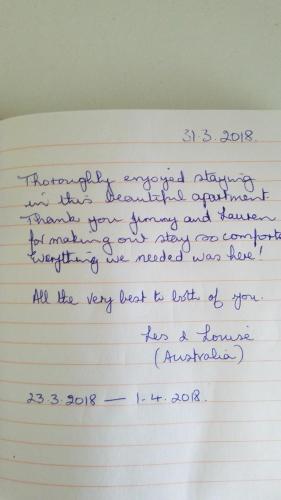 31.3.2018.
Thoroughly enjoyed staying
in this beautiful apartment.
Thank you Jimmy and Lauren
for making our stay so comforta
Everything we needed was here!
All the very best to both of you.
Les & Louise
(Australia)
23.3.2018 — 1.4.2018.